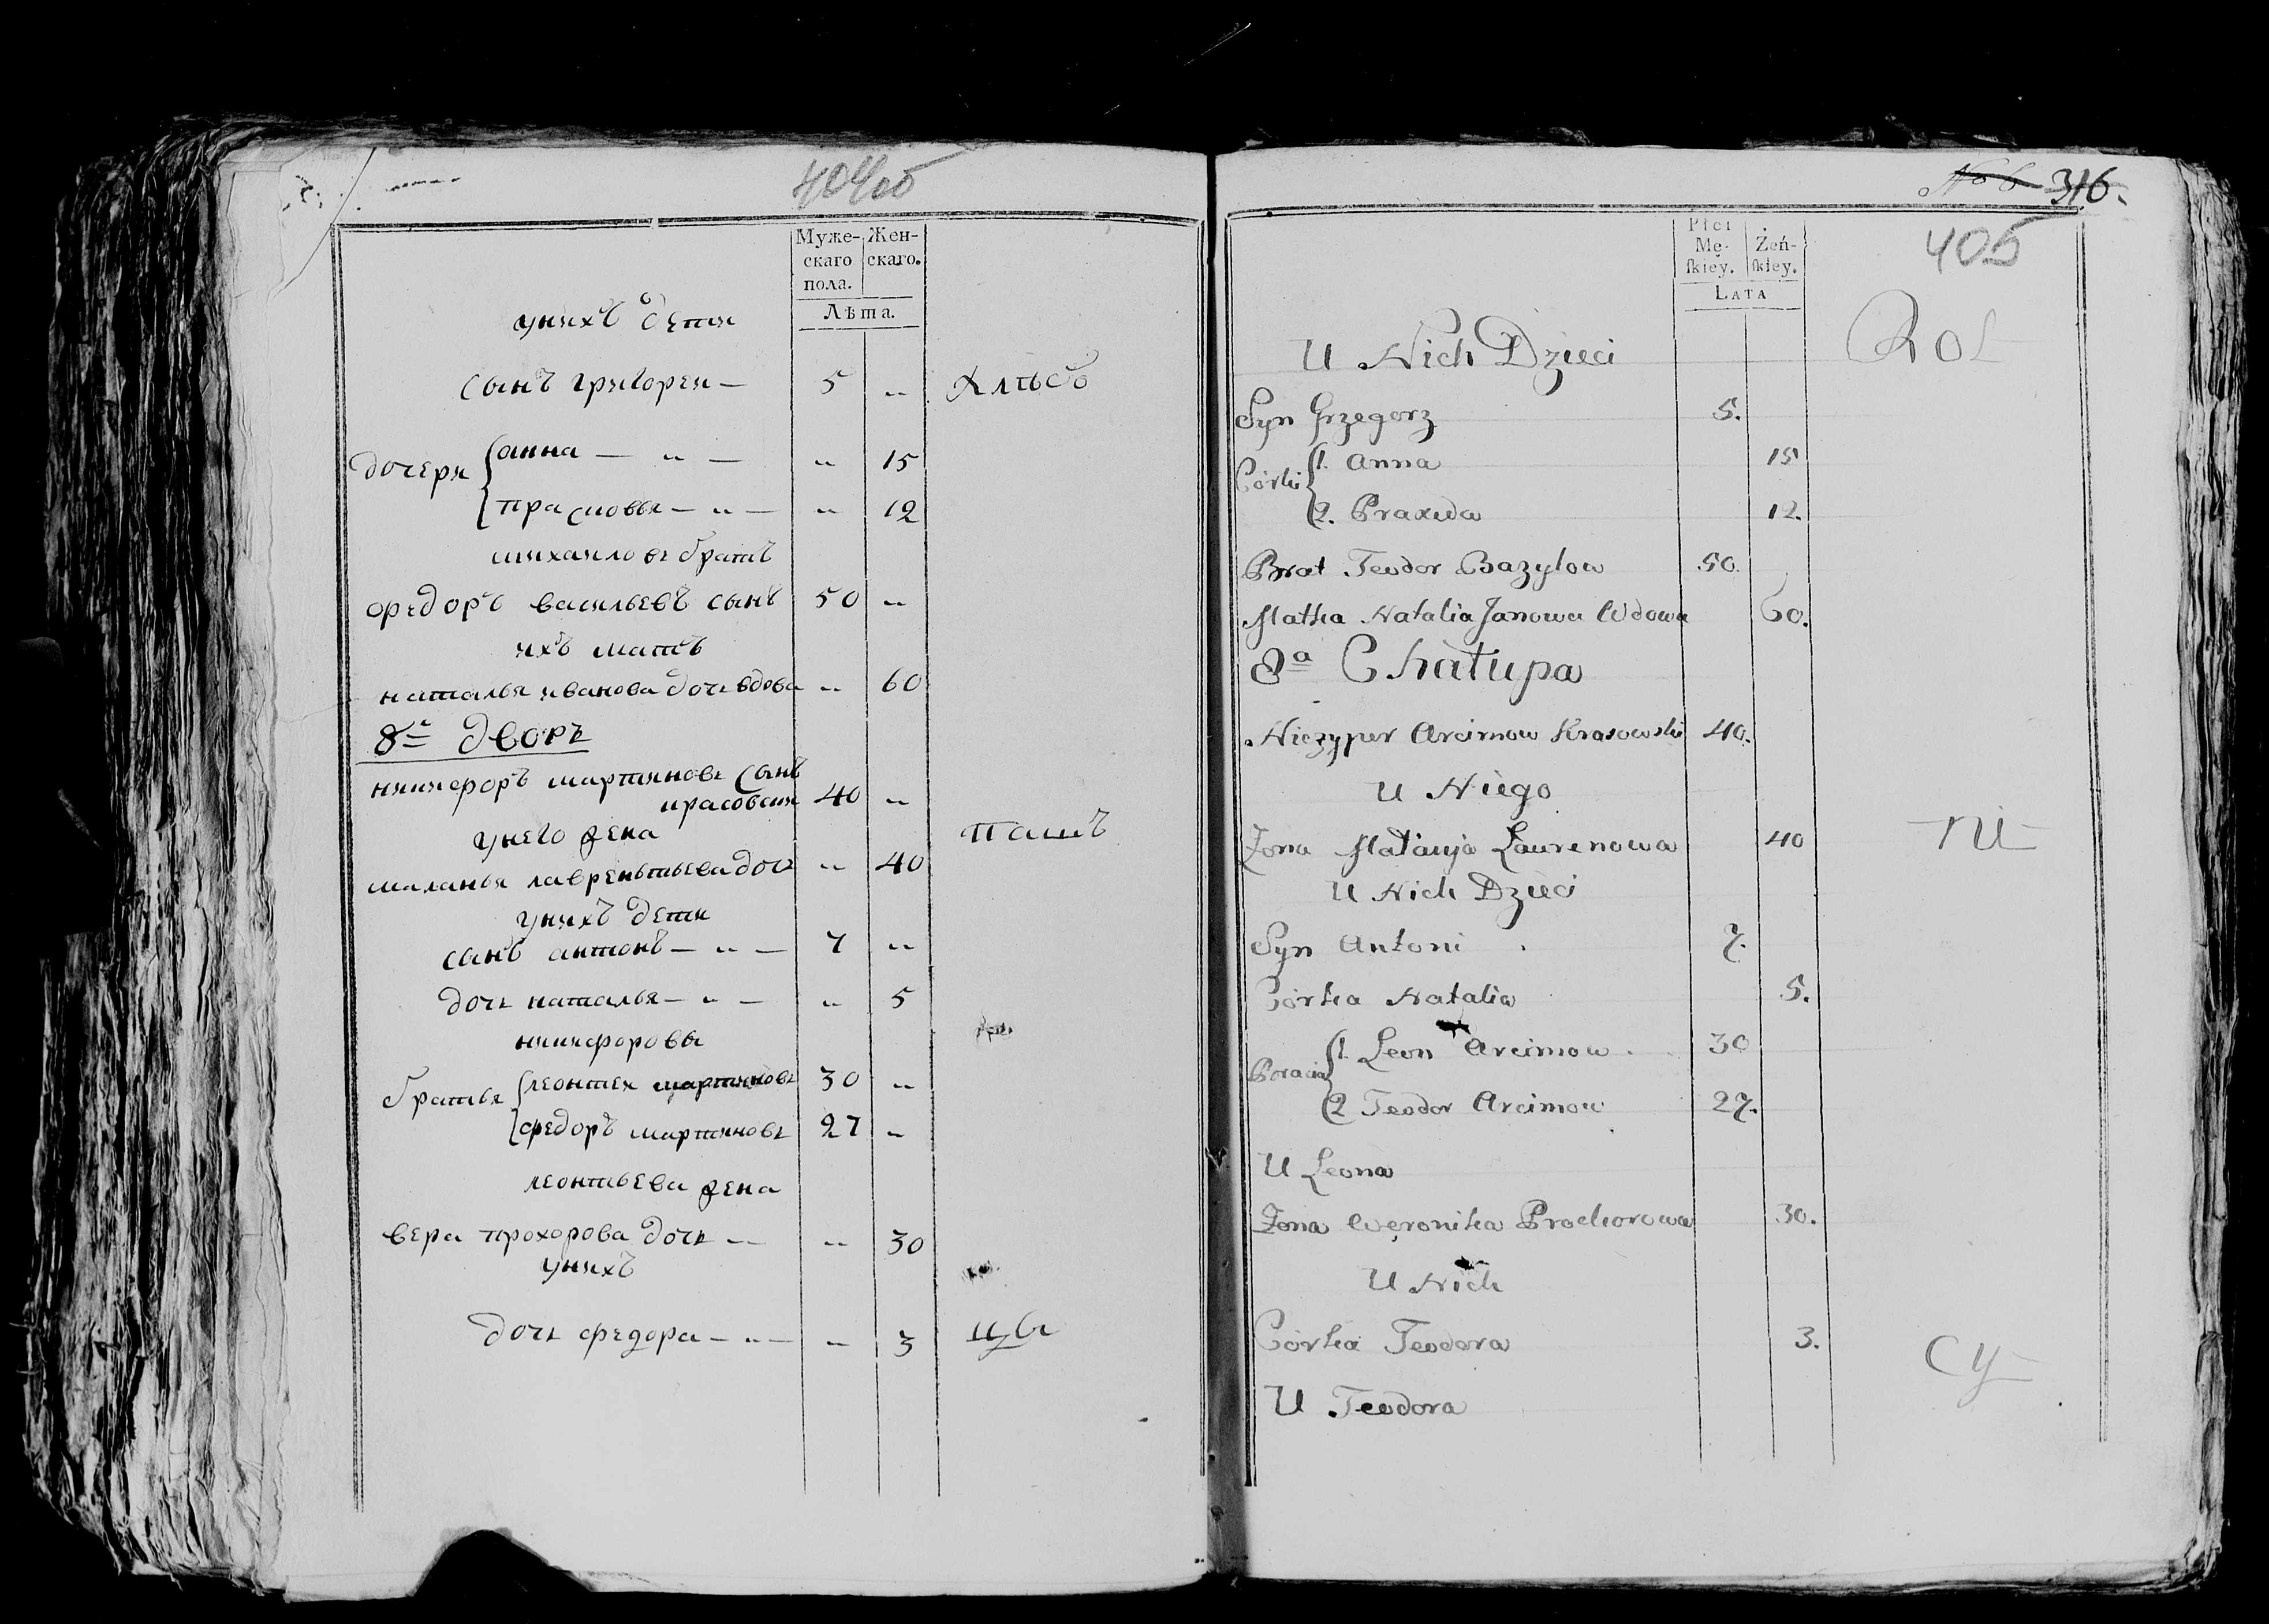 404об
Муже- Жен-
скаго скаго.
пола.
Лѣта.
унихъ дети
сынъ григореи — 5 „ хлѣбо
дочери { анна — „ — „ 15
{ прасковья — „ — „ 12
михаиловъ братъ
федоръ васильевъ сынъ 50 „
ихъ мать
наталья иванова дочь вдова „ 60
8й дворъ
никифоръ мартиновъ сынъ
красовски 40 „
унего жена паш
маланья лаврентьева дочь „ 40
унихъ дети
сынъ антонъ — „ — 7 „
дочь наталья — „ — „ 5
никифоровы
братья { леонтеи мартиновъ 30 „
{ федоръ мартиновъ 27 „
леонтьева жена
вера прохорова дочь — „ 30
унихъ
дочь федора — „ — „ 3 цы
No 6 316.
405
Płci
Mę- Żeń-
skiey. skiey.
Lata
U Nich Dzieci Rol
Syn Grzegorz 5.
Córki { 1. Anna 15
{ 2. Praxeda 12.
Brat Teodor Bazylow 50.
Matka Natalia Janowa Wdowa 60.
8a Chałupa
Niczyper Arcimow Krasowski 40.
U Niego
Żona Małanja Laurenowa 40 ni
U Nich Dzieci
Syn Antoni 7.
Córka Natalia 5.
Boracia { 1. Leon Arcimow. 30
{ 2 Teodor Arcimow 27.
U Leona
Żona Weronika Prochorowa 30.
U Nich
Córka Teodora 3. cy
U Teodora